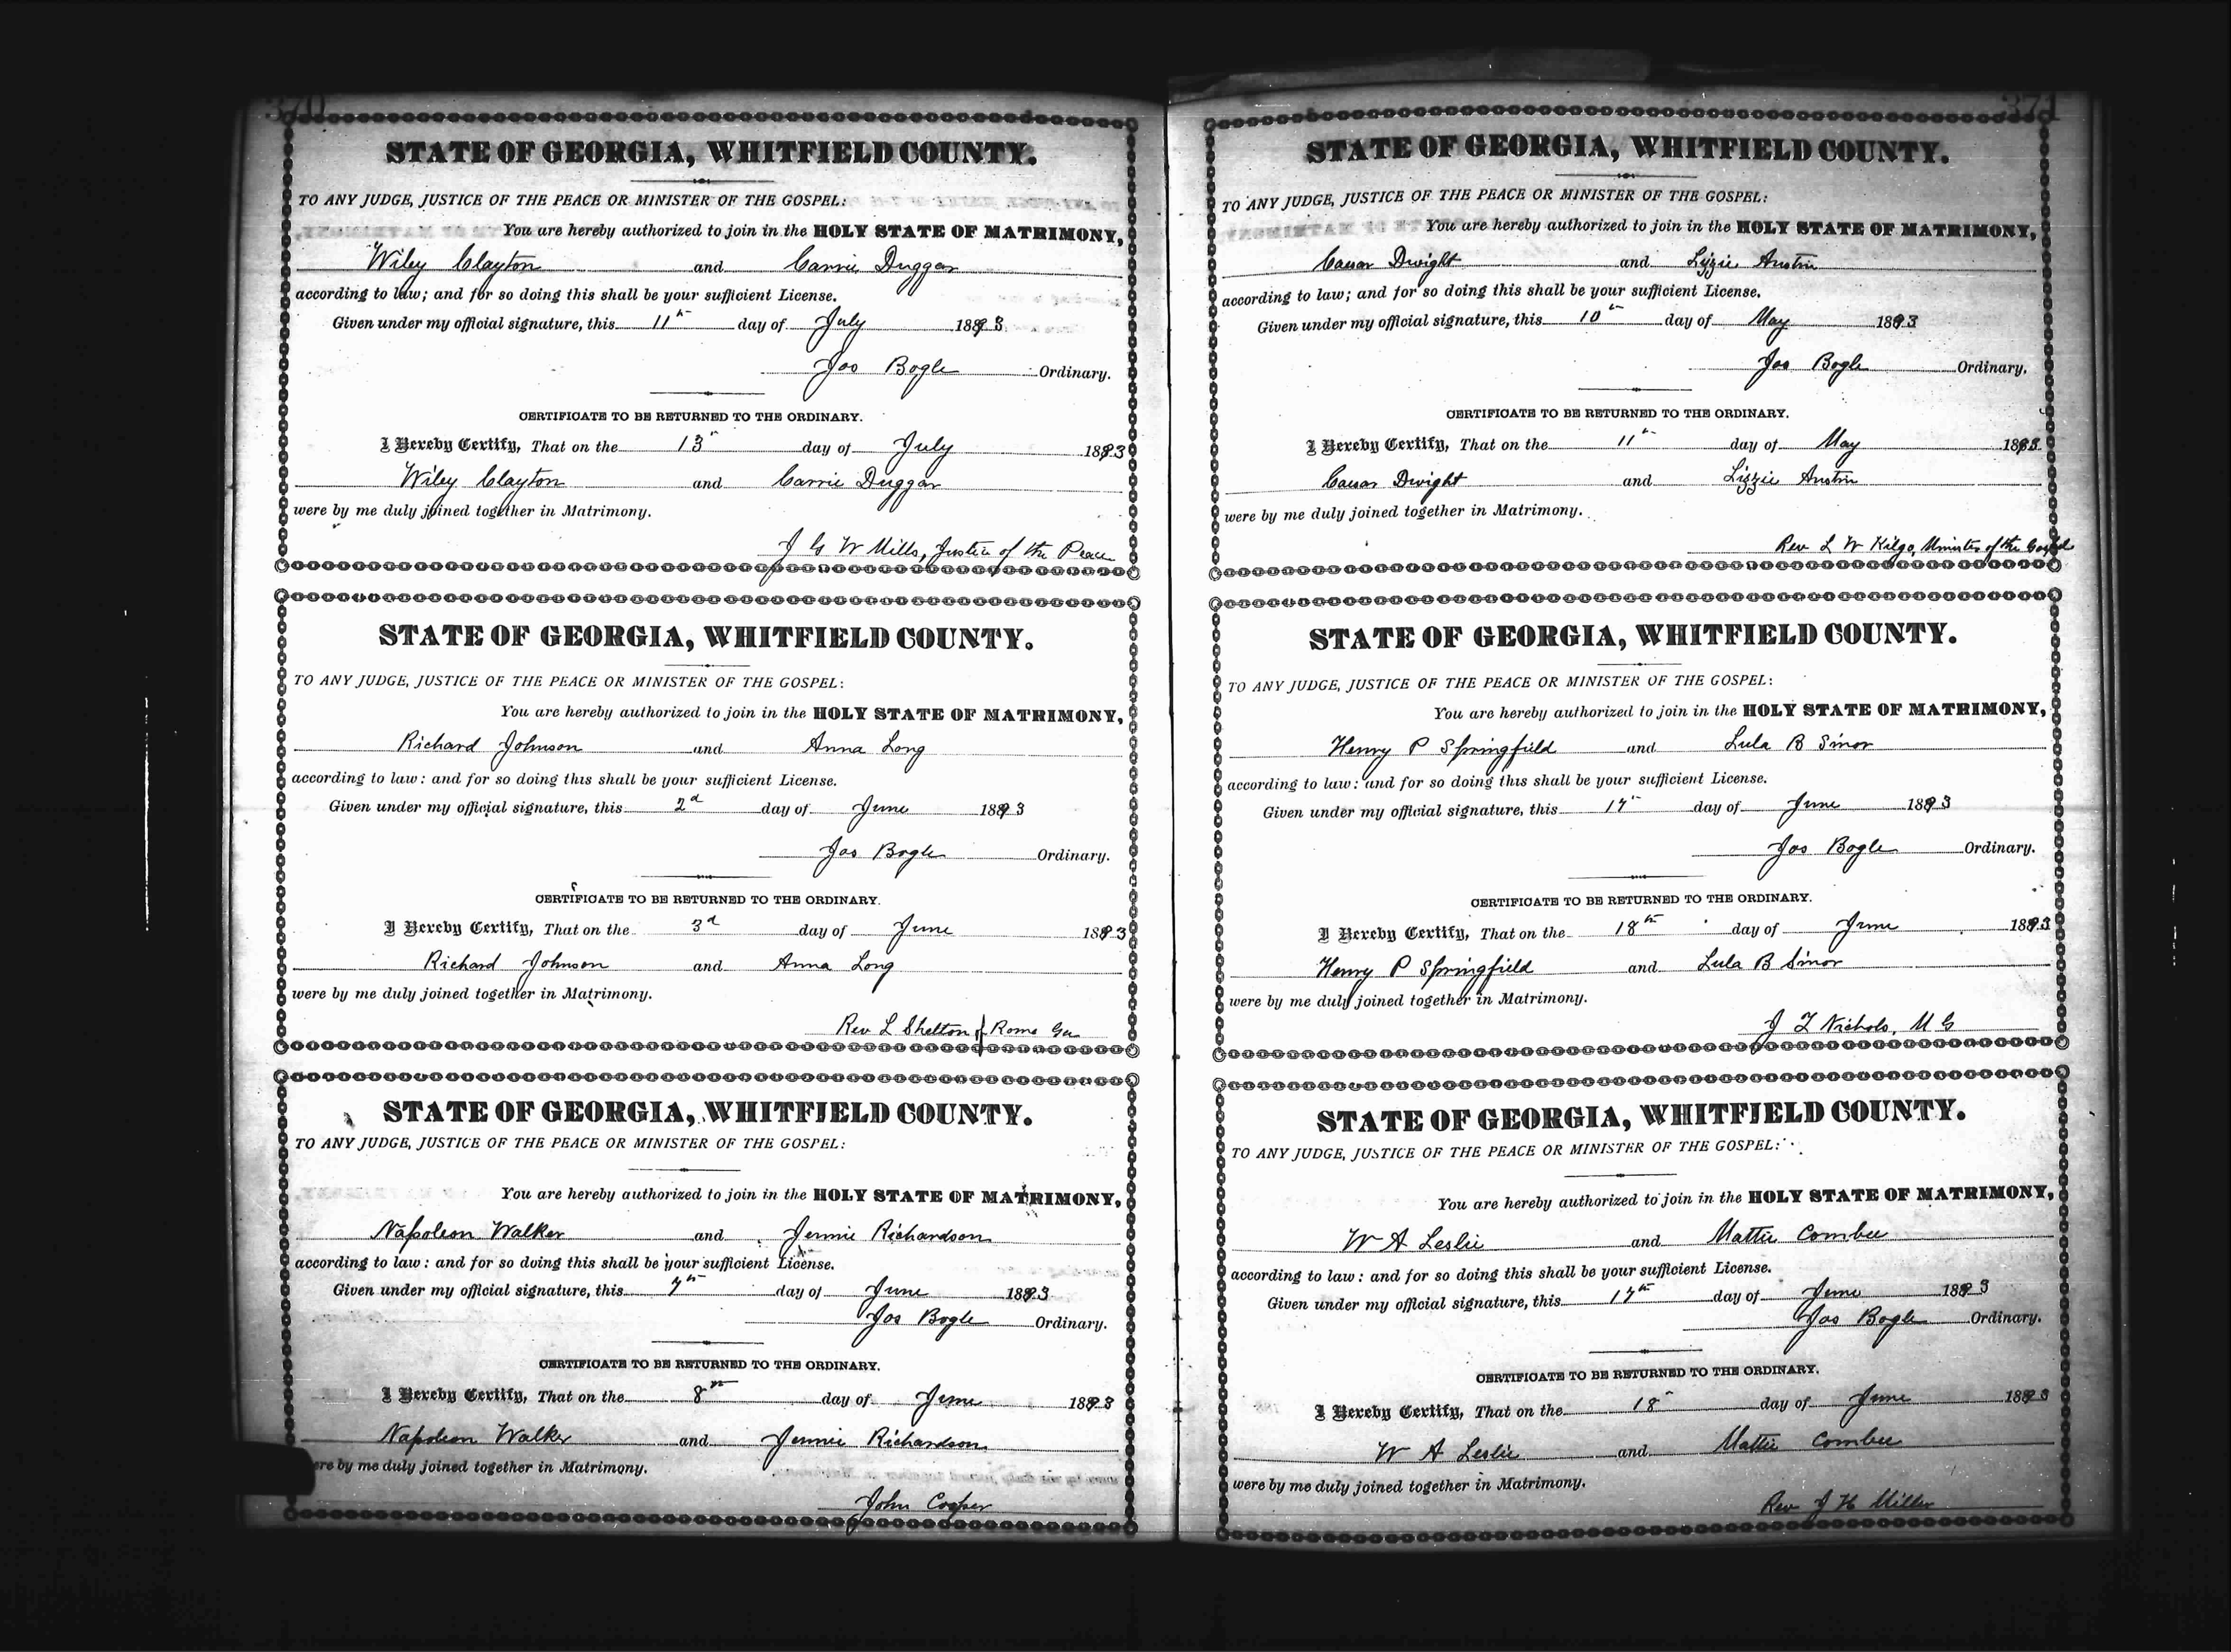 370
STATE OF GEORGIA, WHITFIELD COUNTY.
TO ANY JUDGE, JUSTICE OF THE PEACE OR MINISTER OF THE GOSPEL:
You are hereby authorized to join in the HOLY STATE OF MATRIMONY,
Wiley Clayton and Carrie Duggar
according to law; and for so doing this shall be your sufficient License.
Given under my official signature, this 11th day of July 1893
Jos Bogle Ordinary.
CERTIFICATE TO BE RETURNED TO THE ORDINARY.
I Hereby Certify, That on the 13" day of July 1893
Wiley Clayton and Carrie Duggar
were by me duly joined together in Matrimony.
J G W Mills, Justice of the Peace
STATE OF GEORGIA, WHITFIELD COUNTY.
TO ANY JUDGE, JUSTICE OF THE PEACE OR MINISTER OF THE GOSPEL:
You are hereby authorized to join in the HOLY STATE OF MATRIMONY,
Richard Johnson and Anna Long
according to law: and for so doing this shall be your sufficient License.
Given under my official signature, this 2d day of June 1893
Jos Bogle Ordinary.
CERTIFICATE TO BE RETURNED TO THE ORDINARY.
I Hereby Certify, That on the 3d day of June 1893
Richard Johnson and Anna Long
were by me duly joined together in Matrimony.
Rev L Shelton of Rome Ga
STATE OF GEORGIA, WHITFIELD COUNTY.
TO ANY JUDGE, JUSTICE OF THE PEACE OR MINISTER OF THE GOSPEL:
You are hereby authorized to join in the HOLY STATE OF MATRIMONY,
Napoleon Walker and Jennie Richardson
according to law: and for so doing this shall be your sufficient License.
Given under my official signature, this 7th day of June 1893
Jos Bogle Ordinary.
CERTIFICATE TO BE RETURNED TO THE ORDINARY.
I Hereby Certify, That on the 8th day of June 1893
Napoleon Walker and Jennie Richardson
ere by me duly joined together in Matrimony.
John Cooper
371
STATE OF GEORGIA, WHITFIELD COUNTY.
TO ANY JUDGE, JUSTICE OF THE PEACE OR MINISTER OF THE GOSPEL:
You are hereby authorized to join in the HOLY STATE OF MATRIMONY,
Caesar Dwight and Lizzie Austin
according to law; and for so doing this shall be your sufficient License.
Given under my official signature, this 10th day of May 1893
Jos Bogle Ordinary.
CERTIFICATE TO BE RETURNED TO THE ORDINARY.
I Hereby Certify, That on the 11th day of May 1893
Caesar Dwight and Lizzie Austin
were by me duly joined together in Matrimony.
Rev L W Kilgo, Minister of the Gospel
STATE OF GEORGIA, WHITFIELD COUNTY.
TO ANY JUDGE, JUSTICE OF THE PEACE OR MINISTER OF THE GOSPEL:
You are hereby authorized to join in the HOLY STATE OF MATRIMONY,
Henry P Springfield and Lula B Sinor
according to law: and for so doing this shall be your sufficient License.
Given under my official signature, this 17" day of June 1893
Jos Bogle Ordinary.
CERTIFICATE TO BE RETURNED TO THE ORDINARY.
I Hereby Certify, That on the 18th day of June 1893
Henry P Springfield and Lula B Sinor
were by me duly joined together in Matrimony.
J T Nichols, M G
STATE OF GEORGIA, WHITFIELD COUNTY.
TO ANY JUDGE, JUSTICE OF THE PEACE OR MINISTER OF THE GOSPEL:
You are hereby authorized to join in the HOLY STATE OF MATRIMONY,
W A Leslie and Mattie Combee
according to law: and for so doing this shall be your sufficient License.
Given under my official signature, this 17th day of June 1893
Jos Bogle Ordinary.
CERTIFICATE TO BE RETURNED TO THE ORDINARY.
I Hereby Certify, That on the 18" day of June 1893
W A Leslie and Mattie Combee
were by me duly joined together in Matrimony.
Rev J H Miller